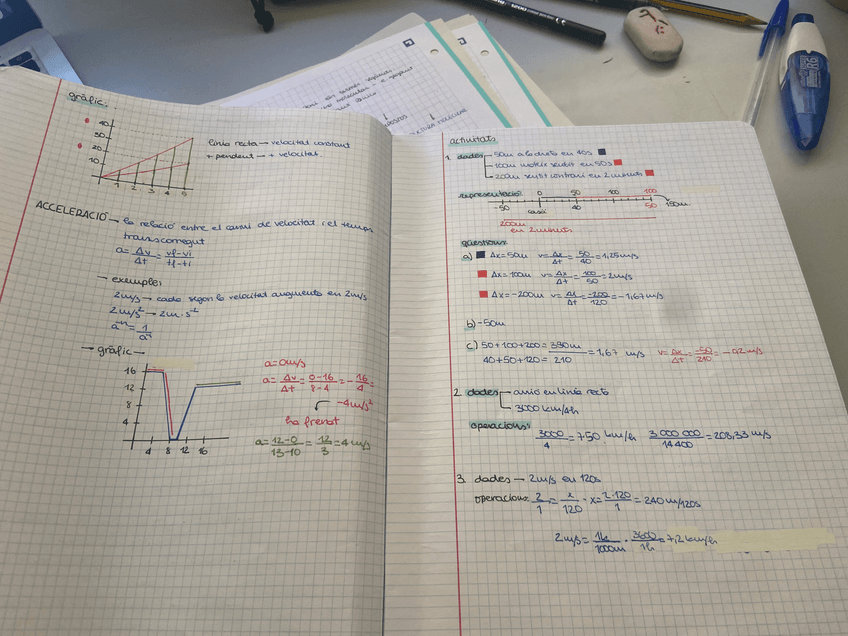 gràfic.
40
30
20
10
1 2 3 4 5
línia recta → velocitat constant
+ pendent → + velocitat
ACCELERACIÓ → la relació entre el canvi de velocitat i el temps
transcorregut
a = Δv/Δt = vf-vi/tf-ti
→ exemple:
2m/s → cada segon la velocitat augmenta en 2m/s
2m/s² → 2m·s⁻²
a⁻ⁿ = 1/aⁿ
→ gràfic →
16
12
8
4
4 8 12 16
a=0m/s
a = Δv/Δt = 0-16/8-4 = -16/4 =
-4m/s²
ha frenat
a = 12-0/13-10 = 12/3 = 4m/s
activitats
1. dades
50m a la dreta en 40s
100m mateix sentit en 50s
200m sentit contrari en 2 minuts
representació
0 50 100 100
-50 casa 40 50 150m
200m
en 2 minuts
qüestions
a) Δx=50m v=Δx/Δt=50/40=1,25m/s
Δx=100m v=Δx/Δt=100/50=2m/s
Δx=-200m v=Δx/Δt=-200/120=-1,67m/s
b) -50m
c) 50+100+200=350m/40+50+120=210 = 1,67 m/s v=Δx/Δt=-50/210=-0,2m/s
2. dades
avió en línia recta
3000 km/4h
operacions:
3000/4=750 km/h 3 000 000/14400=208,33 m/s
3. dades → 2m/s en 120s
operacions: 2/1=x/120 · x=2·120/1=240 m/120s
2m/s = 1k/1000m · 3600/1h = 7,2 km/h